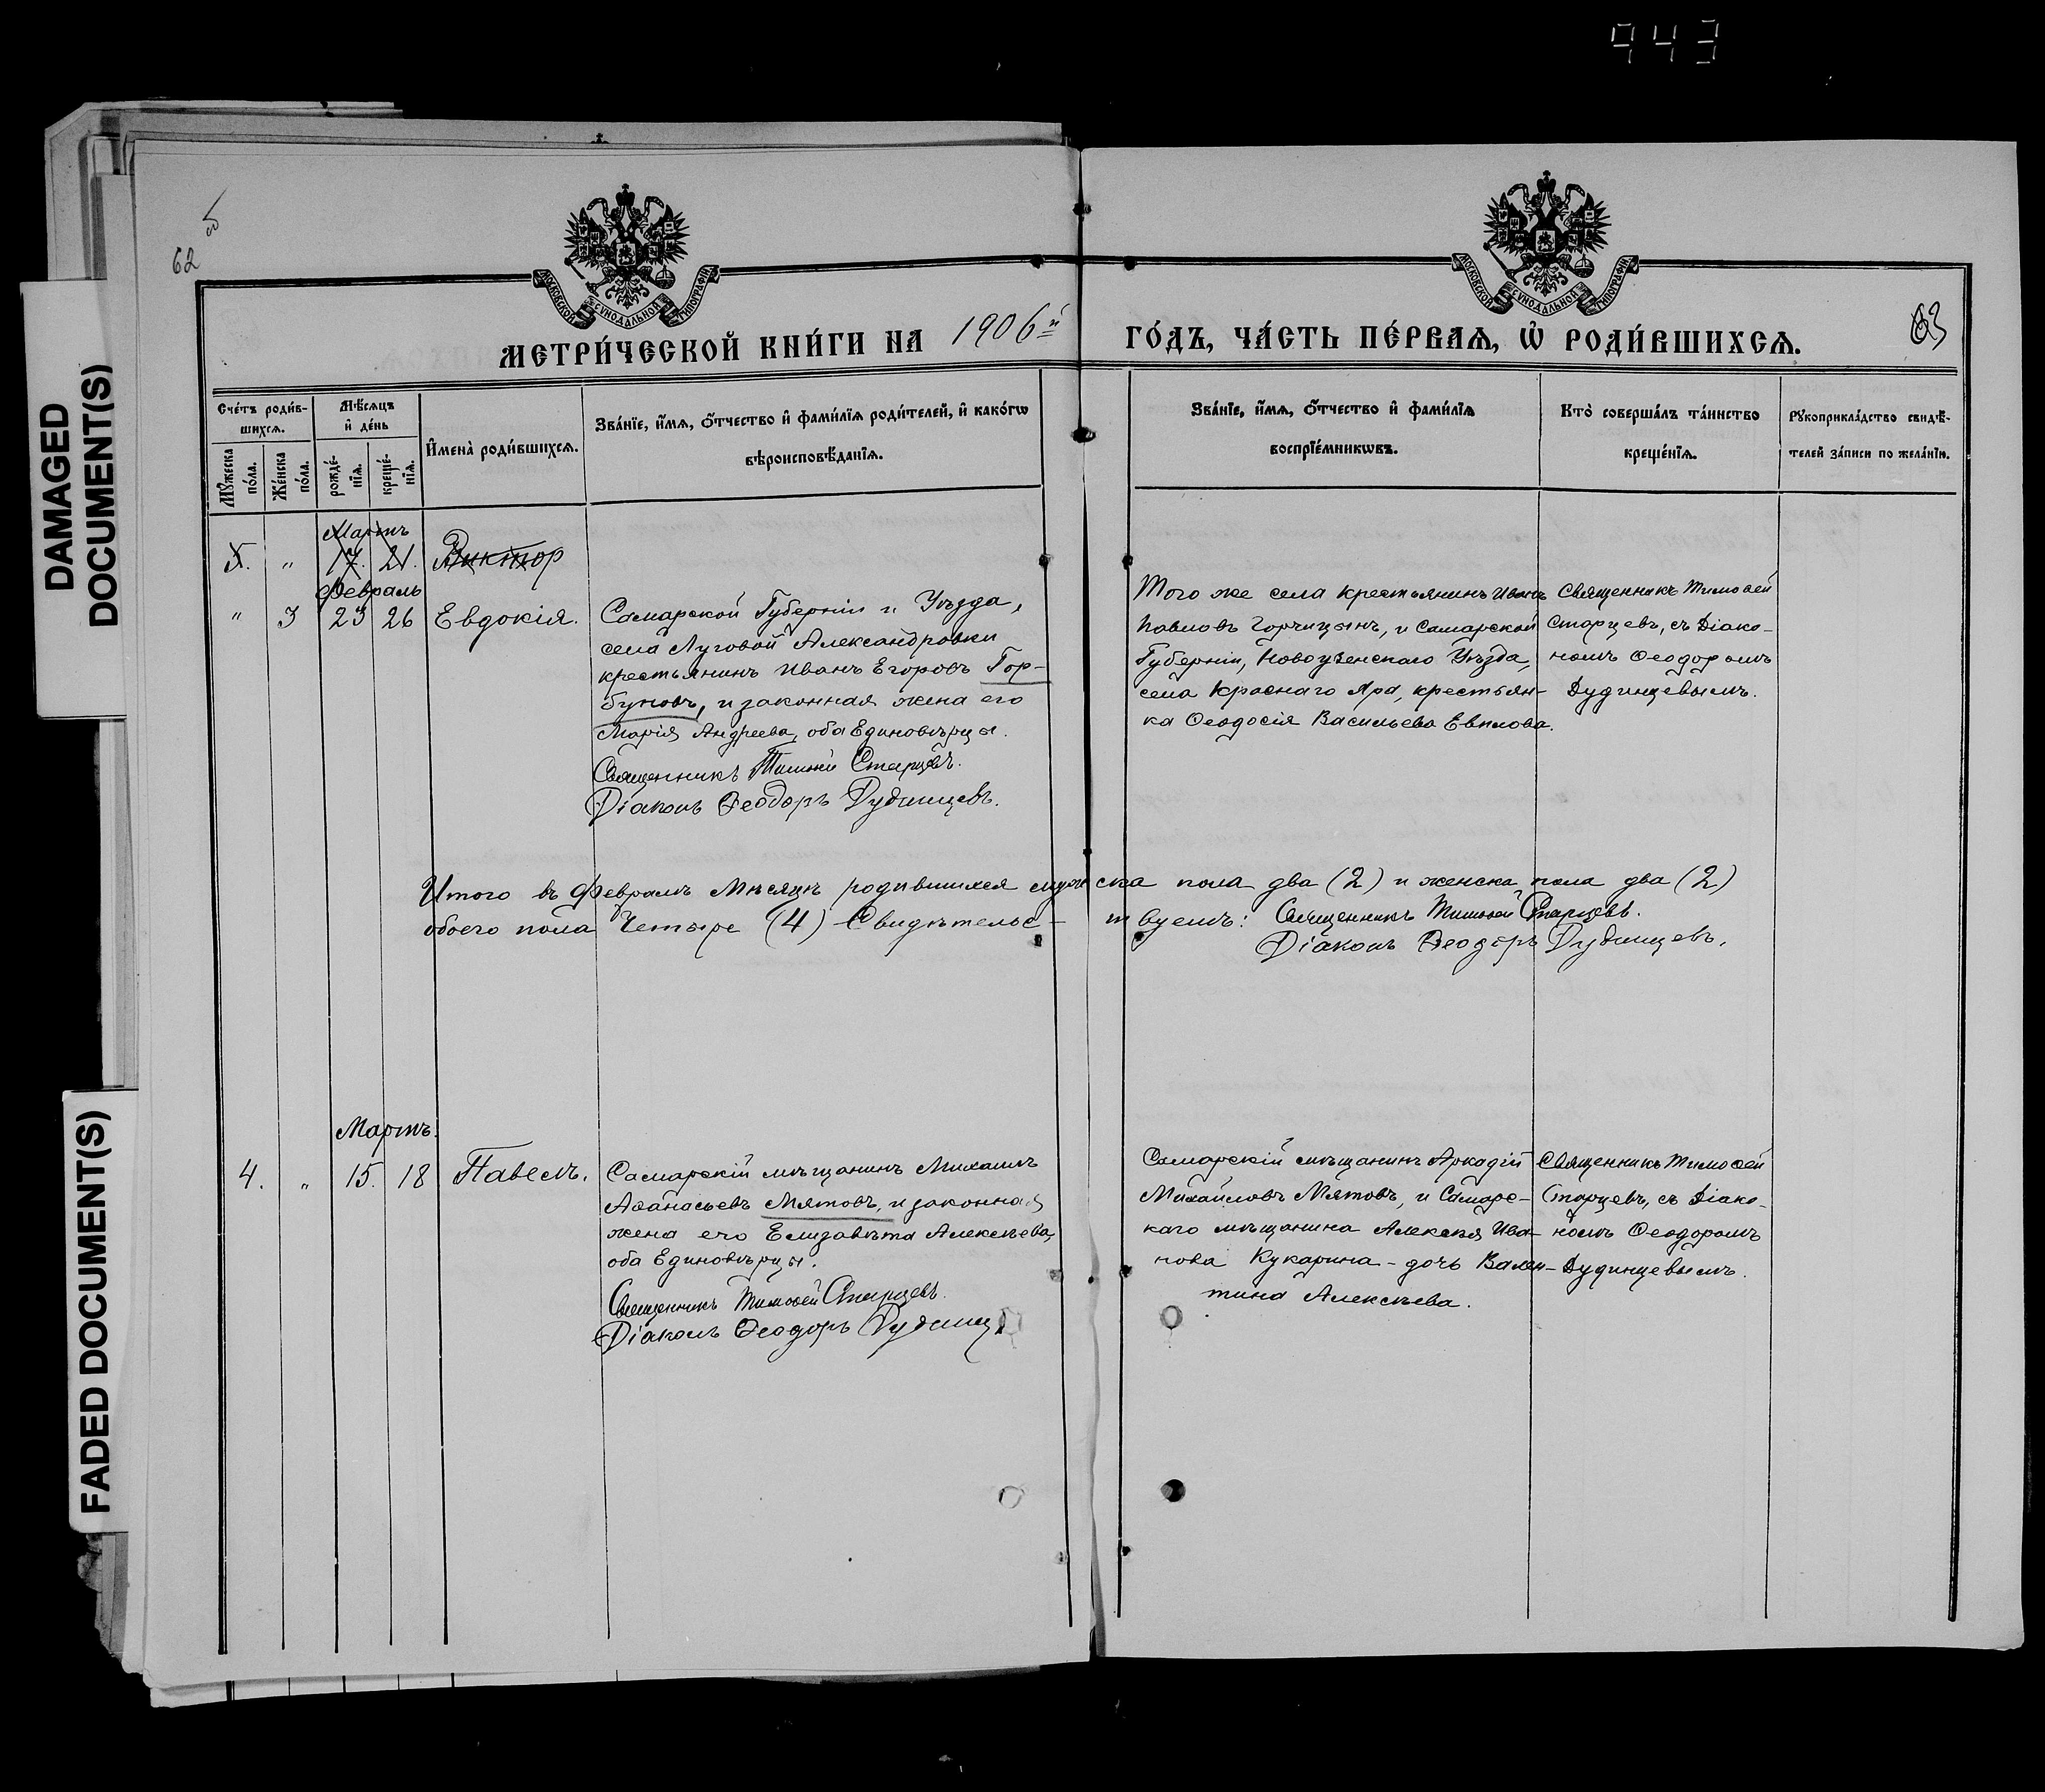 943
DAMAGED
DOCUMENT(S)
FADED DOCUMENT(S)
62
МОСКОВСКОЙ СѴНОДАЛЬНОЙ ТИПОГРАФІИ
МОСКОВСКОЙ СѴНОДАЛЬНОЙ ТИПОГРАФІИ
МЕТРИ́ЧЕСКОЙ КНИ́ГИ НА 1906й ГО́ДЪ, ЧА́СТЬ ПЕ́РВАѦ, Ѡ҆ РОДИ́ВШИХСѦ.
63
Сче́тъ роди́в-
шихсѧ.
Мꙋ́жеска
по́ла.
Же́нска
по́ла.
Мѣ́сѧцъ
и҆ де́нь
рожде́-
нїѧ.
креще́-
нїѧ.
И҆мена̀ роди́вшихсѧ.
Зва́нїе, и҆́мѧ, ѻ҆́тчество и҆ фами́лїѧ роди́телей, и҆ како́гѡ
вѣроисповѣ́данїѧ.
Зва́нїе, и҆́мѧ, ѻ҆́тчество и҆ фами́лїѧ
воспрїе́мникѡвъ.
Кто̀ соверша́лъ та́инство
креще́нїѧ.
Рꙋкоприкла́дство свидѣ́-
телей за́писи по жела́нїю.
Мартъ
5. " 17. 21. Виктор
Февраль
" 3 23 26 Евдокія.
Самарской Губерніи и Уѣзда,
села Луговой Александровки
крестьянинъ Иванъ Егоровъ Гор-
буновъ, и законная жена его
Марія Андреева, оба Единовѣрцы.
Священникъ Тимоѳей Старцевъ.
Діаконъ Ѳеодоръ Дудинцевъ.
Того же села крестьянинъ Иванъ
Павловъ Горчицынъ, и Самарской
Губерніи, Новоузенскаго Уѣзда,
села Краснаго Яра, крестьян-
ка Ѳеодосія Васильева Евилова.
Священникъ Тимоѳей
Старцевъ, съ Діако-
номъ Ѳеодоромъ
Дудинцевымъ.
Итого въ Февралѣ мѣсяцѣ родившихся мужеска пола два (2) и женска пола два (2)
обоего пола Четыре (4) Свидѣтельс- твуемъ: Священникъ Тимоѳей Старцевъ.
Діаконъ Ѳеодоръ Дудинцевъ.
Мартъ.
4. " 15. 18 Павелъ.
Самарскій мѣщанинъ Михаилъ
Аѳанасьевъ Мятовъ, и законная
жена его Елизавѣта Алексѣева,
оба Единовѣрцы.
Священникъ Тимоѳей Старцевъ.
Діаконъ Ѳеодоръ Дудинц
Самарскій мѣщанинъ Аркадій
Михайловъ Мятовъ, и Самарс-
каго мѣщанина Алексѣя Ива-
нова Кукарина - дочь Вален-
тина Алексѣева.
Священникъ Тимоѳей
Старцевъ, съ Діако-
номъ Ѳеодоромъ
Дудинцевымъ.